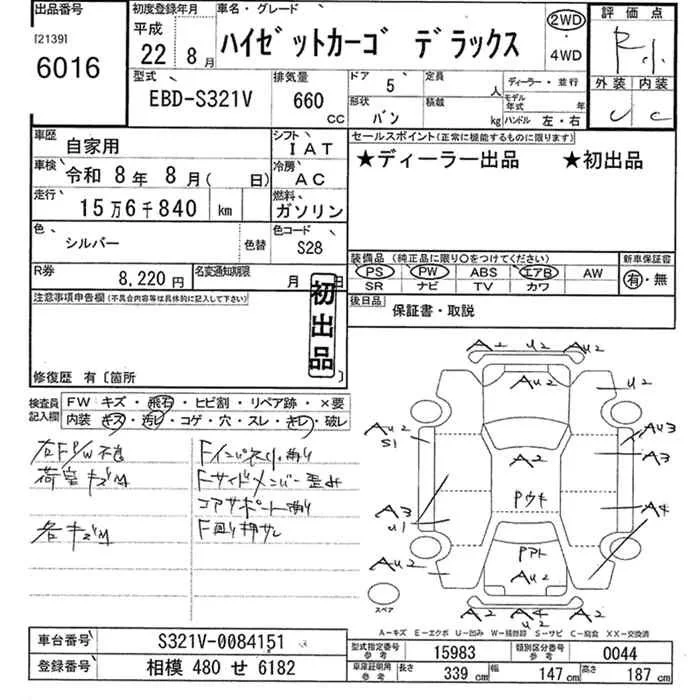 出品番号
[2139]
6016
初度登録年月
平成
22 8月
車名・グレード
ハイゼットカーゴ デラックス
2WD
・
4WD
評価点
R
外装 内装
C
型式
EBD-S321V
排気量
660
CC
ドア 5
定員 人
ディーラー・並行
形状 バン
積載 kg
モデル年式 年
ハンドル 左・右
車歴 自家用
シフト IAT
車検 令和 8年 8月( 日)
冷房 AC
走行 15万6千840 km
燃料 ガソリン
色 シルバー 色替
色コード S28
R券 8,220円
名変通知期限 月 日
セールスポイント(正常に機能するものに限ります)
★ディーラー出品 ★初出品
装備品(純正品に限り○をつけてください)
新車保証書
PS PW ABS エアB AW
SR ナビ TV カワ
有・無
後日品
保証書・取説
注意事項申告欄(不具合内容等は具体的に記入して下さい)
初出品
修復歴 有〔箇所 〕
検査員記入欄
FW キズ・飛石・ヒビ割・リペア跡・×要
内装 キズ・汚レ・コゲ・穴・スレ・キレ・破レ
右FP/W不良
荷室キズM
各キズM
Fインパネ小削り
Fサイドメンバー歪み
コアサポート削り
F廻り押サレ
A2 U2 AU2
AU2 U2
AU2
S1
AU3
A3
A2
Pウキ
A3
U1
A4
AU2
Pアト
AU2
A2 A4 AU2
U2
スペア
A-キズ E-エクボ U-凹み W-補修跡 S-サビ C-腐食 XX-交換済
車台番号 S321V-0084151
登録番号 相模 480 せ 6182
型式指定番号 参考 15983
類別区分番号 参考 0044
車庫証明用 参考
長さ 339 cm
幅 147 cm
高さ 187 cm